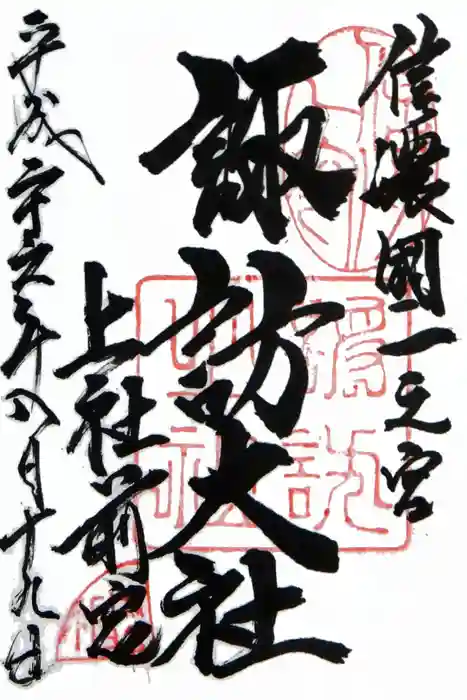 信濃國一之宮
諏訪大社
上社前宮
平成二十六年八月十九日